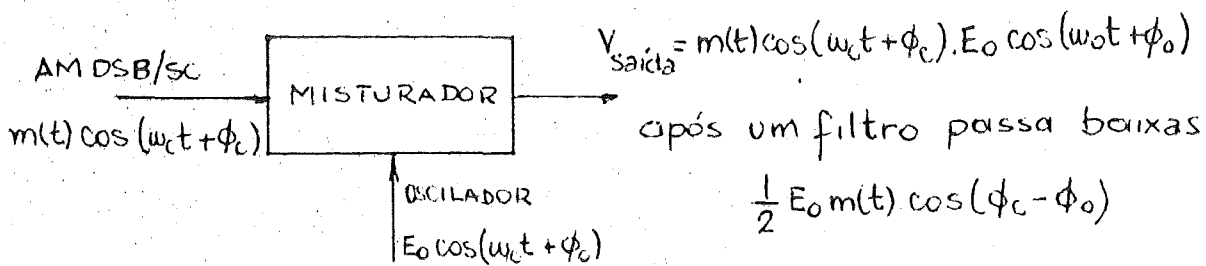 AM DSB/SC
m(t) cos(ωct+ϕc)
MISTURADOR
OSCILADOR
E0 cos(ωct + ϕc)
Vsaída = m(t) cos(ωct+ϕc). E0 cos(ω0t+ϕ0)
após um filtro passa baixas
1/2 E0 m(t) cos(ϕc-ϕ0)